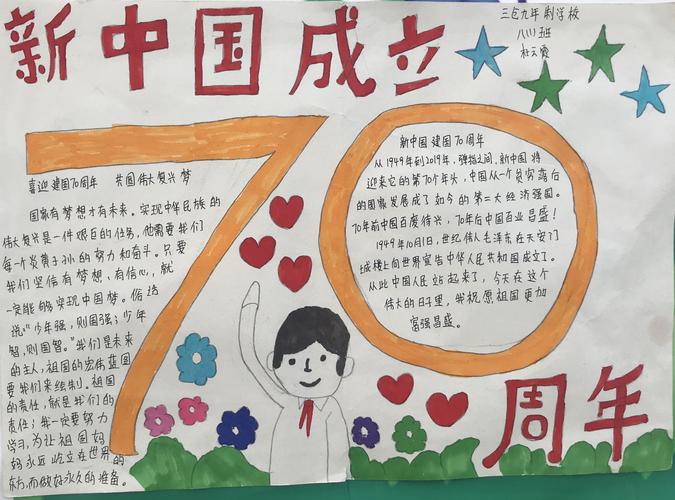 新中国成立
三仓九年制学校
八(1)班
杜云霞
70
喜迎建国70周年 共圆伟大复兴梦
国家有梦想才有未来。实现中华民族的
伟大复兴是一件艰巨的任务,他需要我们
每一个炎黄子孙的努力和奋斗。只要
我们坚信有梦想、有信心,就
一定能够实现中国梦。俗话
说"少年强,则国强;少年
智,则国智。"我们是未来
的主人,祖国的宏伟蓝图
要我们来绘制。祖国
的责任,就是我们的
责任;我一定要努力
学习,为让祖国妈
妈永远屹立在世界的
东方,而做好永久的准备。
新中国建国70周年
从1949年到2019年,弹指之间,新中国将
迎来它的第70个年头,中国从一个贫穷落后
的国家发展成了如今的第二大经济强国。
70年前中国百废待兴,70年后中国百业昌盛!
1949年10月1日,世纪伟人毛泽东在天安门
城楼上向世界宣告中华人民共和国成立了。
从此中国人民站起来了,今天在这个
伟大的日子里,我祝愿祖国更加
富强昌盛。
周年